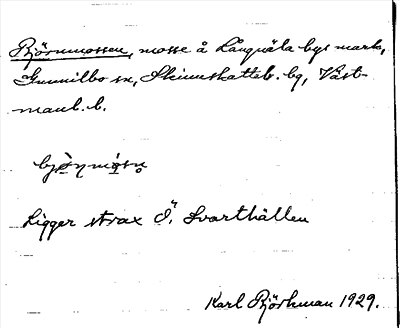 Björnmossen, mosse å Långväla bys mark,
Gunnilbo sn, Skinnskatteb. bg, Väst-
manl. l.
Ligger strax Ö. Svarthällen
Karl Björkman 1929.